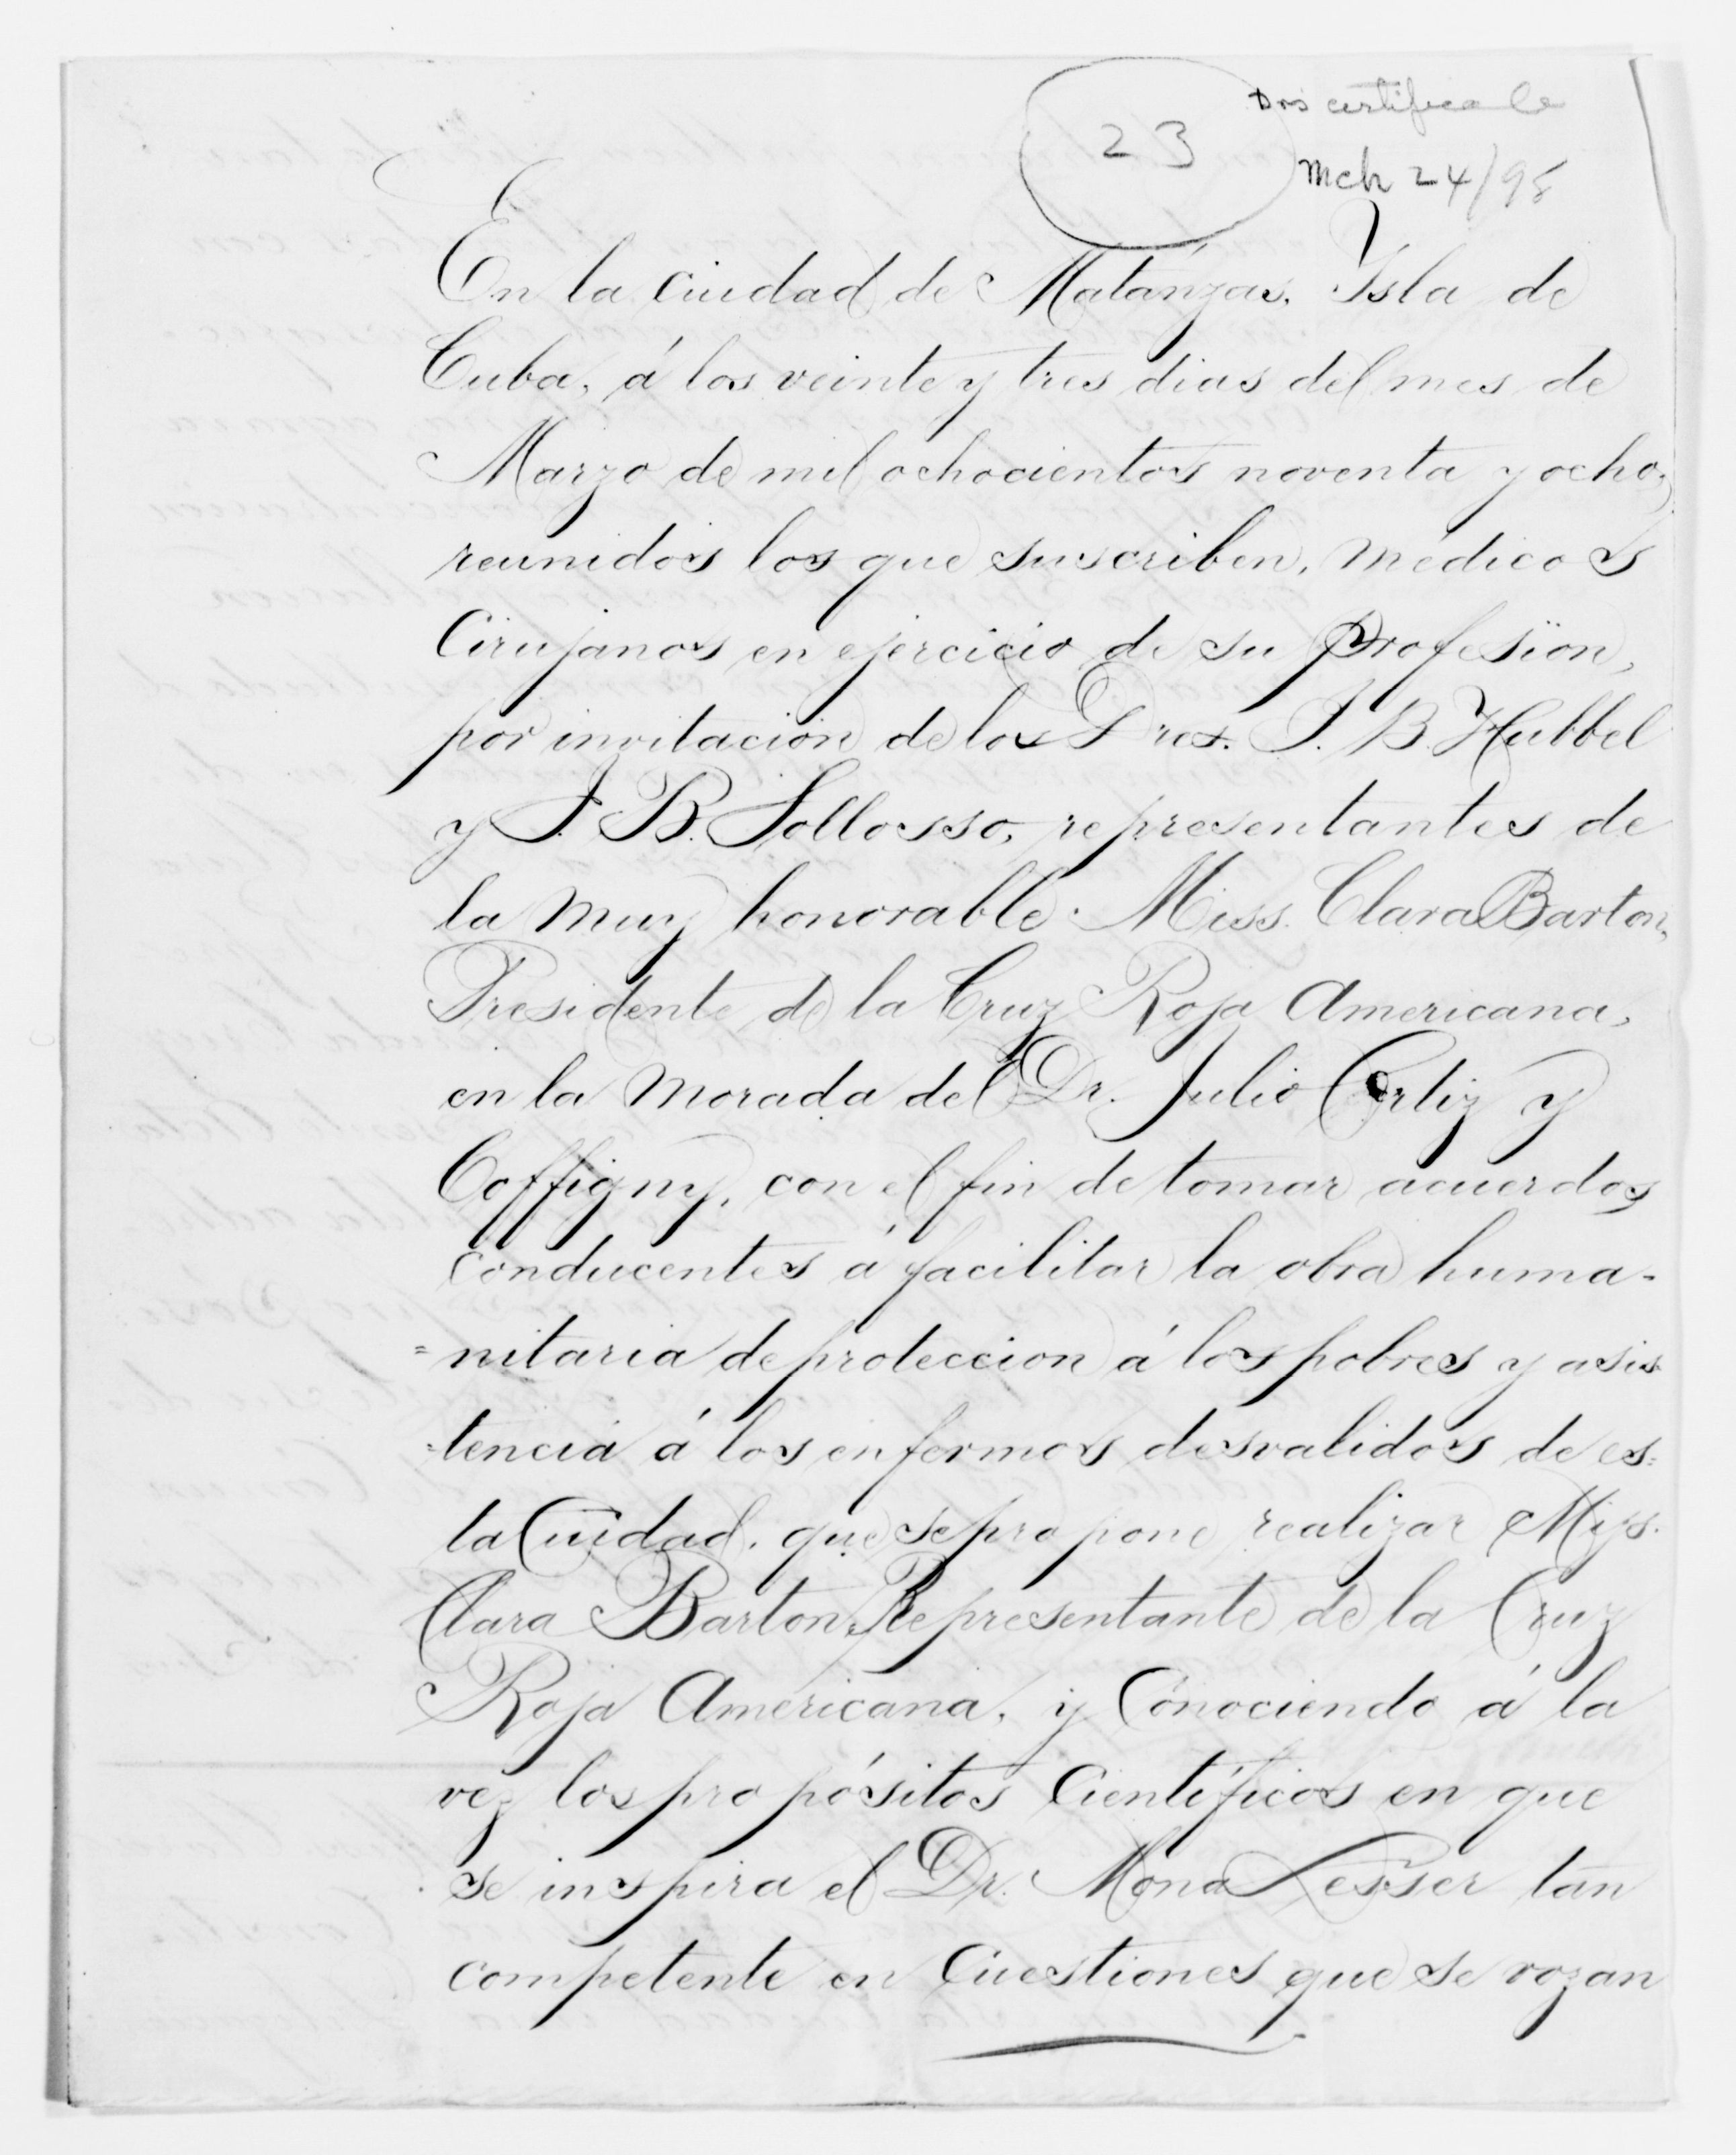 23
Drs certificate
Mch 24/98
En la Ciudad de Matánzas, Ysla de
Cuba, á los veinte y tres dias del mes de
Marzo de mil ochocientos noventa y ocho,
reunidos los que suscriben, médicos
Cirujanos en ejercicio de su Profesion,
por invitacion de los Dres. J. B. Hubbel
y J. B. Sollosso, representantes de
la muy honorable Miss. Clara Barton,
Presidente de la Cruz Roja Americana,
en la morada del Dr. Julio Ortiz y
Coffigny, con el fin de tomar acuerdos
conducentes á facilitar la obra huma-
=nitaria de proteccion á los pobres y asis
=tencia á los enfermos desvalidos de es=
ta Ciudad, que se propone realizar Miss.
Clara Barton, Representante de la Cruz
Roja Americana, y Conociendo á la
vez los propósitos Científicos en que
se inspira el Dr. Mona Lesser tan
competente en Cuestiones que se rozan